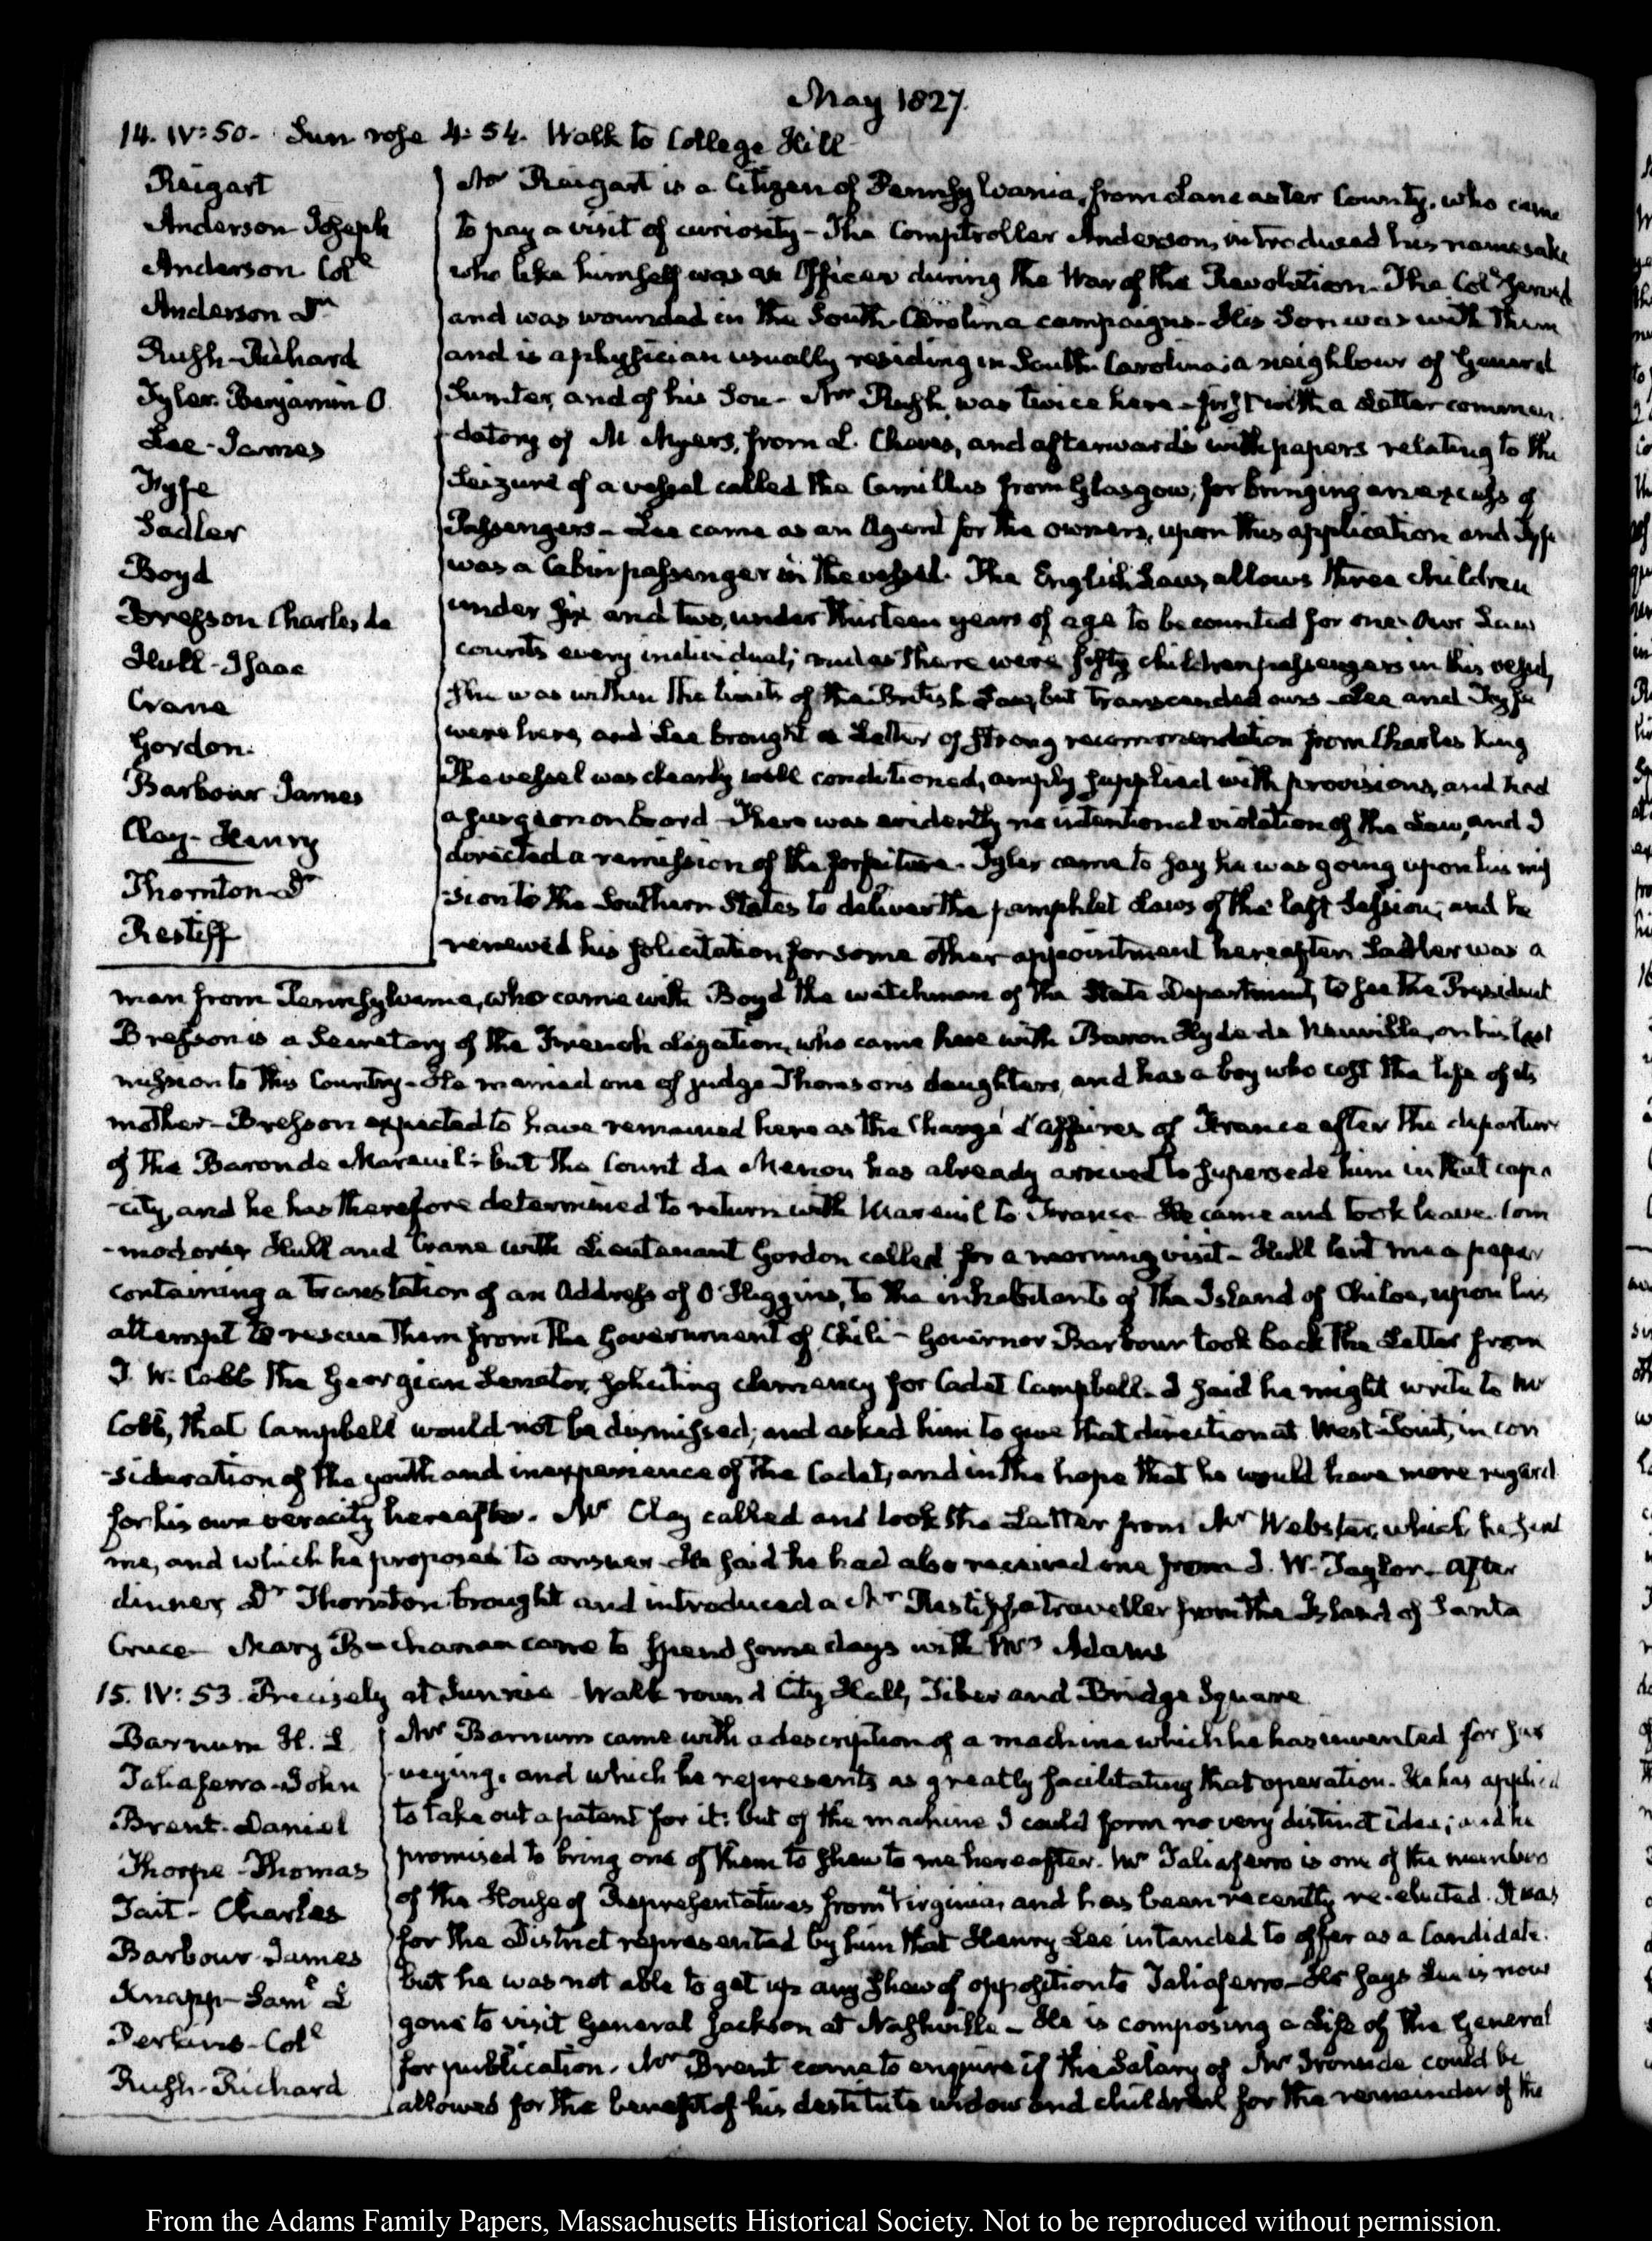 May 1827.
14. IV:50. Sun rose 4:54. Walk to College Hill
Reigart
Anderson Joseph
Anderson Colo.
Anderson Dr
Rush-Richard
Tyler. Benjamin O.
Lee-James
Fyfe
Sadler
Boyd
Bresson Charles de
Hull-Isaac
Crane
Gordon.
Barbour James
Clay-Henry
Thornton-Dr
Restiff
Mr Reigart is a Citizen of Pennsylvania, from Lancaster County, who came
to pay a visit of curiosity- The Comptroller Anderson, introduced his namesake
who like himself was an Officer during the War of the Revolution- The Colo. served
and was wounded in the South-Carolina campaigns- His Son was with them
and is a physician usually residing in South Carolina; a neighbour of General
Sumter, and of his Son- Mr Rush, was twice here- first with a Letter commen-
-datory of M Myers, from L. Cheves, and afterwards with papers relating to the
Seizure of a vessel called the Camillus from Glasgow, for bringing an excess of
Passengers- Lee came as an Agent for the owners, upon this application and Fyfe
was a Cabin passenger in the vessel. The English Law, allows three children
under six and two, under thirteen years of age to be counted for one. Our Law
counts every individual; and as there were fifty children passengers in this vessel,
she was within the limits of the British Law, but transcended ours- Lee and Fyfe
were here, and Lee brought a Letter of strong recommendation from Charles King
The vessel was clearly well conditioned, amply supplied with provisions, and had
a surgeon on board- There was evidently no intentional violation of the Law, and I
directed a remission of the forfeiture- Tyler came to say he was going upon his mis
-sion to the Southern States to deliver the pamphlet Laws of the last Session; and he
renewed his solicitation for some other appointment hereafter. Sadler was a
man from Pennsylvania, who came with Boyd the watchman of the State Department, to see the President
Bresson is a Secretary of the French Legation, who came here with Baron Hyde de Neuville, on his last
mission to this Country- He married one of judge Thomson's daughters, and has a boy who cost the life of its
mother- Bresson expected to have remained here as the Chargé d'Affaires of France after the departure
of the Baron de Mareuil; but the Count de Menou has already arrived to supersede him in that capa
-city, and he has therefore determined to return with Mareuil to France- He came and took leave. Com
-modores Hull and Crane with Lieutenant Gordon called for a morning visit- Hull lent me a paper
containing a translation of an Address of O'Higgins, to the inhabitants of the Island of Chiloe, upon his
attempt to rescue them from the Government of Chili- Governor Barbour took back the Letter from
T. W. Cobb the Georgian Senator, soliciting clemency for Cadet Campbell. I said he might write to Mr
Cobb, that Campbell would not be dismissed; and asked him to give that direction at West-Point, in con
-sideration of the youth and inexperience of the Cadet, and in the hope that he would have more regard
for his own veracity hereafter. Mr Clay called and took the Letter from Mr Webster, which he sent
me, and which he proposes to answer- He said he had also received one from J. W. Taylor- After
dinner, Dr Thornton brought and introduced a Mr Restiff, a traveller from the Island of Santa
Cruce- Mary Buchanan came to spend some days with Mrs Adams
15. IV:53. Precisely at Sunrise- Walk round City Hall, Tiber and Bridge Square
Barnum H. L
Taliaferro-John
Brent-Daniel
Thorpe-Thomas
Tait-Charles
Barbour James
Knapp-Saml L
Perkins-Colo.
Rush-Richard
Mr Barnum came with a description of a machine which he has invented for sur
-veying, and which he represents as greatly facilitating that operation. He has applied
to take out a patent for it: but of the machine I could form no very distinct idea; and he
promised to bring one of them to shew to me hereafter. Mr Taliaferro is one of the members
of the House of Representatives from Virginia, and has been recently re-elected. It was
for the District represented by him that Henry Lee intended to offer as a Candidate.
but he was not able to get up any shew of opposition to Taliaferro- He says Lee is now
gone to visit General Jackson at Nashville- He is composing a Life of the General
for publication. Mr Brent came to enquire if the Salary of Mr Ironside could be
allowed for the benefit of his destitute widow and children for the remainder of the
From the Adams Family Papers, Massachusetts Historical Society. Not to be reproduced without permission.